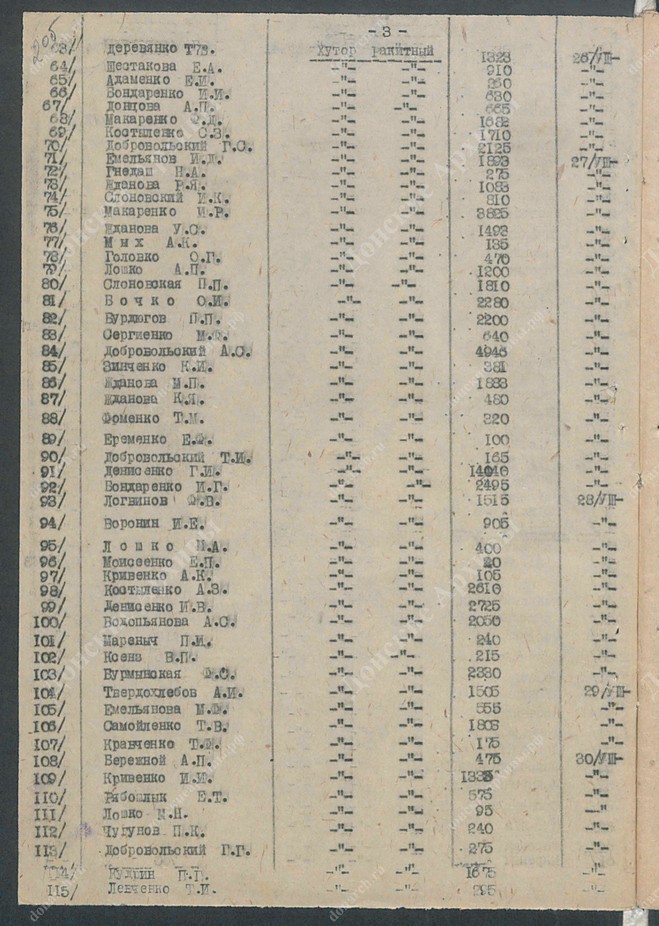 205
- 3 -
63/ деревянко Т.З. Хутор ракитный 1323 26/VIII-
64/ Шестакова Е.А. -"- -"- 910 -"-
65/ Адаменко Е.И. -"- -"- 260 -"-
66/ Бондаренко И.И. -"- -"- 630 -"-
67/ Донцова А.П. -"- -"- 665 -"-
68/ Макаренко Ф.Д. -"- -"- 1632 -"-
69/ Костыленко С.З. -"- -"- 1710 -"-
70/ Добровольский Г.С. -"- -"- 2125 -"-
71/ Емельянов И.Д. -"- -"- 1893 27/VIII-
72/ Гнедаш Н.А. -"- -"- 275 -"-
73/ Жданова Р.Я. -"- -"- 1083 -"-
74/ Слоновский И.К. -"- -"- 810 -"-
75/ Макаренко И.Р. -"- -"- 3825 -"-
76/ Жданова У.С. -"- -"- 1493 -"-
77/ М ы х А.К. -"- -"- 135 -"-
78/ Головко О.Г. -"- -"- 470 -"-
79/ Лошко А.П. -"- -"- 1200 -"-
80/ Слоновская П.П. -"- -"- 1810 -"-
81/ Б о ч к о О.И. -"- -"- 2280 -"-
82/ Бурдюгов П.П. -"- -"- 2200 -"-
83/ Сергиенко М.Ф. -"- -"- 640 -"-
84/ Добровольский А.С. -"- -"- 4946 -"-
85/ Зинченко К.И. -"- -"- 381 -"-
86/ Жданова М.П. -"- -"- 1883 -"-
87/ Жданова К.Я. -"- -"- 480 -"-
88/ Фоменко Т.М. -"- -"- 320 -"-
89/ Еременко Е.Ф. -"- -"- 100 -"-
90/ Добровольский Т.И. -"- -"- 165 -"-
91/ Денисенко Г.И. -"- -"- 14040 -"-
92/ Бондаренко И.Г. -"- -"- 2495 -"-
93/ Логвинов Ф.В. -"- -"- 1515 28/VIII-
94/ Воронин И.Е. -"- -"- 905 -"-
95/ Л о ш к о И.А. -"- -"- 400 -"-
96/ Моисеенко Е.П. -"- -"- 20 -"-
97/ Кривенко А.К. -"- -"- 105 -"-
98/ Костыленко А.З. -"- -"- 2610 -"-
99/ Денисенко И.В. -"- -"- 2725 -"-
100/ Водопьянова А.С. -"- -"- 2050 -"-
101/ Мареныч П.И. -"- -"- 240 -"-
102/ Ксенз В.П. -"- -"- 215 -"-
103/ Бурминская Ф.С. -"- -"- 2330 -"-
104/ Твердохлебов А.И. -"- -"- 1505 29/VIII-
105/ Емельянова М.Ф. -"- -"- 555 -"-
106/ Самойленко Т.В. -"- -"- 1805 -"-
107/ Кравченко Т.Ф. -"- -"- 175 -"-
108/ Бережной А.П. -"- -"- 475 30/VIII-
109/ Кривенко И.И. -"- -"- 1335 -"-
110/ Рябошлык Е.Т. -"- -"- 575 -"-
111/ Лошко М.Н. -"- -"- 95 -"-
112/ Чугунов П.К. -"- -"- 240 -"-
113/ Добровольский Г.Г. -"- -"- 275 -"-
114/ Кудрин П.П. -"- -"- 1675 -"-
115/ Левченко Т.И. -"- -"- 295 -"-